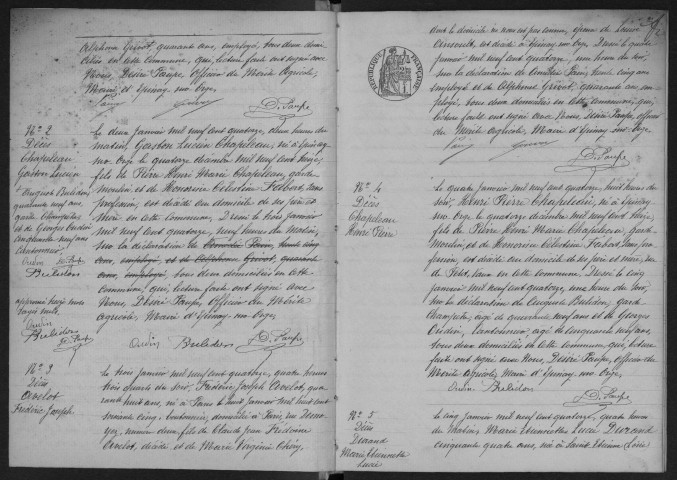 Alphonse Givort, quarante ans, employé, tous deux domi-
ciliés en cette commune, qui, lecture faite ont signé avec
Nous, Désiré Paufre, Officier du Mérite Agricole,
Maire d'Epinay sur Orge.
D. Paufre
N° 2
Décès
Chapeleau
Gaston Lucien
Auguste Bulidon,
quarante neuf ans
garde Champêtre
et de Georges Oudin
cinquante neuf ans
Cantonnier
Oudin
Bulidon
approuvé treize mots
rayés nuls.
Oudin
Bulidon
D. Pauf
Le deux janvier mil neuf cent quatorze, deux heures du
matin, Gaston Lucien Chapeleau, né à Epinay
sur Orge le quatorze décembre mil neuf cent treize,
fils de Pierre Henri Marie Chapeleau, garde
moulin, et de Honorine Célestine Fabord, sans
profession, est décédé au domicile de ses père et
mère en cette commune. Dressé le trois janvier
mil neuf cent quatorze, neuf heures du matin,
sur la déclaration de
ans, employé et de Alphonse Givort, quarante
ans, employé, tous deux domiciliés en cette
commune, qui, lecture faite, ont signé avec
Nous, Désiré Paufre, Officier du Mérite
agricole, Maire d'Epinay sur Orge.
Oudin Bulidon D. Paufre
N° 3
Décès
Ovelot
Frédéric Joseph
Le trois janvier mil neuf cent quatorze, quatre heures
trois quarts du soir, Frédéric Joseph Ovelot, qua-
rante huit ans, né à Paris le huit janvier mil huit cent
soixante cinq, cantonnier, domicilié à Paris, rue
numéro deux, fils de Claude Jean Frédéric
Ovelot, décédé, et de Marie Virginie
dont le domicile ne nous est pas connu, époux de Louise
est décédé à Epinay sur Orge. Dressé le quatre
janvier mil neuf cent quatorze, une heure du soir,
sur la déclaration de
employé et de Alphonse Givort, quarante ans, em-
ployé, tous deux domiciliés en cette commune, qui,
lecture faite ont signé avec Nous, Désiré Paufre, Officier
du Mérite agricole, Maire d'Epinay sur Orge.
D. Paufre
REPUBLIQUE FRANÇAISE
N° 4
Décès
Chapeleau
Henri Pierre
Le quatre janvier mil neuf cent quatorze, huit heures du
soir, Henri Pierre Chapeleau, né à Epinay
sur Orge le quatorze décembre mil neuf cent treize,
fils de Pierre Henri Marie Chapeleau, garde
Moulin, et de Honorine Célestine Fabord, sans pro-
fession, est décédé au domicile de ses père et mère, rue
du Petit Vaux en cette commune. Dressé le cinq
janvier mil neuf cent quatorze, une heure du soir,
sur la déclaration de Auguste Bulidon, garde
Champêtre, âgé de quarante neuf ans et de Georges
Oudin, Cantonnier, âgé de cinquante neuf ans,
tous deux domiciliés en cette commune, qui, lecture
faite ont signé avec Nous, Désiré Paufre, officier du
Mérite agricole, Maire d'Epinay sur Orge.
Oudin Bulidon
D. Paufre
N° 5
Décès
Durand
Marie Etiennette
Lucie
Le cinq janvier mil neuf cent quatorze, quatre heures
du matin, Marie Etiennette Lucie Durand
cinquante quatre ans, née à Saint Etienne (Loire)